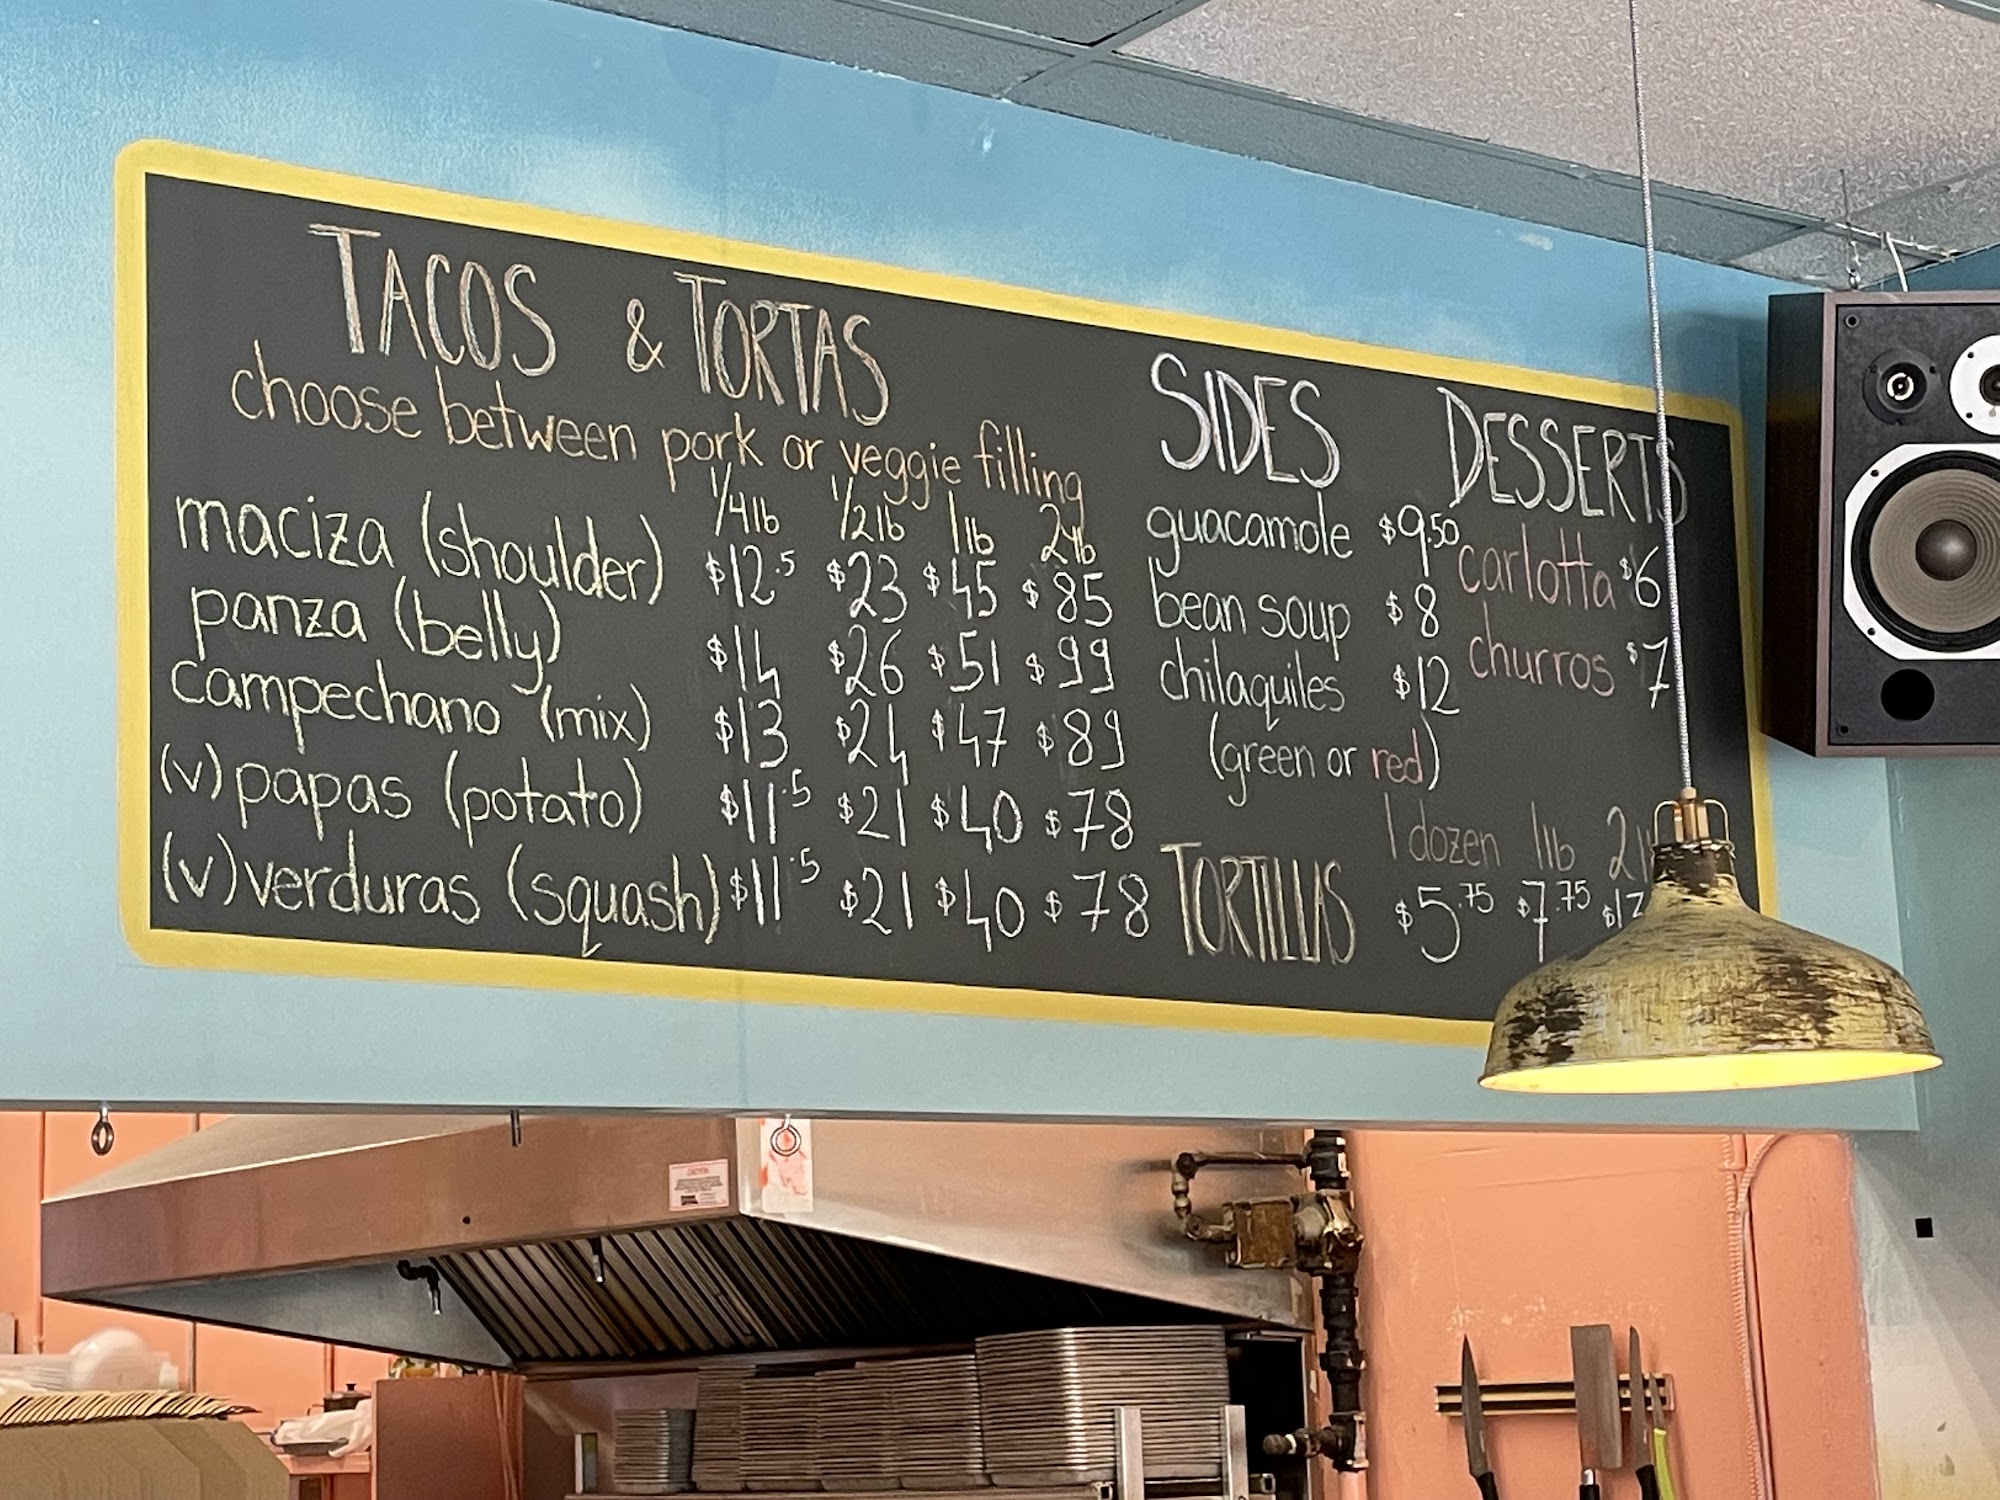 TACOS & TORTAS
choose between pork or veggie filling
1/4lb 1/2lb 1lb 2lb
maciza (shoulder) $12.5 $23 $45 $85
panza (belly) $14 $26 $51 $99
campechano (mix) $13 $24 $47 $89
(v) papas (potato) $11.5 $21 $40 $78
(v) verduras (squash) $11.5 $21 $40 $78
SIDES
guacamole $9.50
bean soup $8
chilaquiles $12
(green or red)
DESSERTS
carlotta $6
churros $7
1 dozen 1lb
TORTILLAS $5.75 $7.75
CAUTION